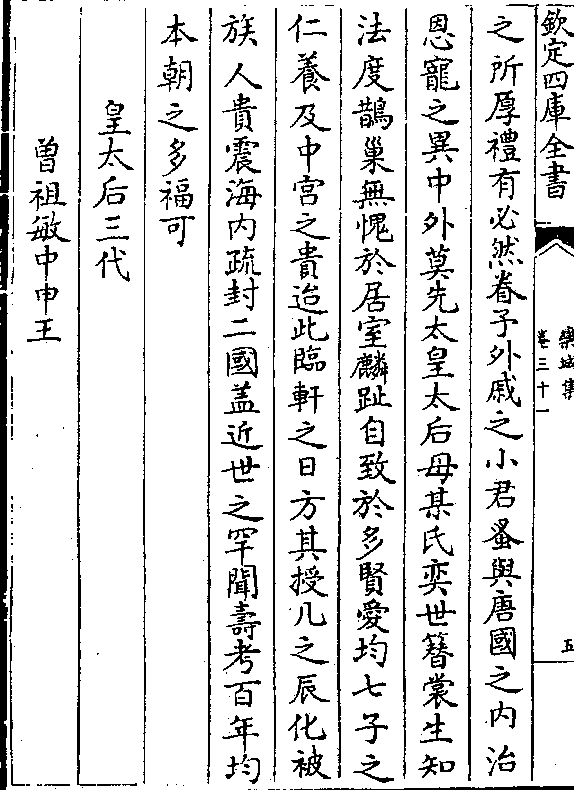 欽定四庫全書
欒城集
卷三十一
五
之所厚禮有必然眷予外戚之小君蚤與唐國之内治
恩寵之異中外莫先太皇太后母某氏奕世簪裳生知
法度鵲巢無愧於居室麟趾自致於多賢愛均七子之
仁養及中宫之貴迨此臨軒之日方其授几之辰化被
族人貴震海内疏封二國盖近世之罕聞壽考百年均
本朝之多福可
皇太后三代
曽祖敏中申王